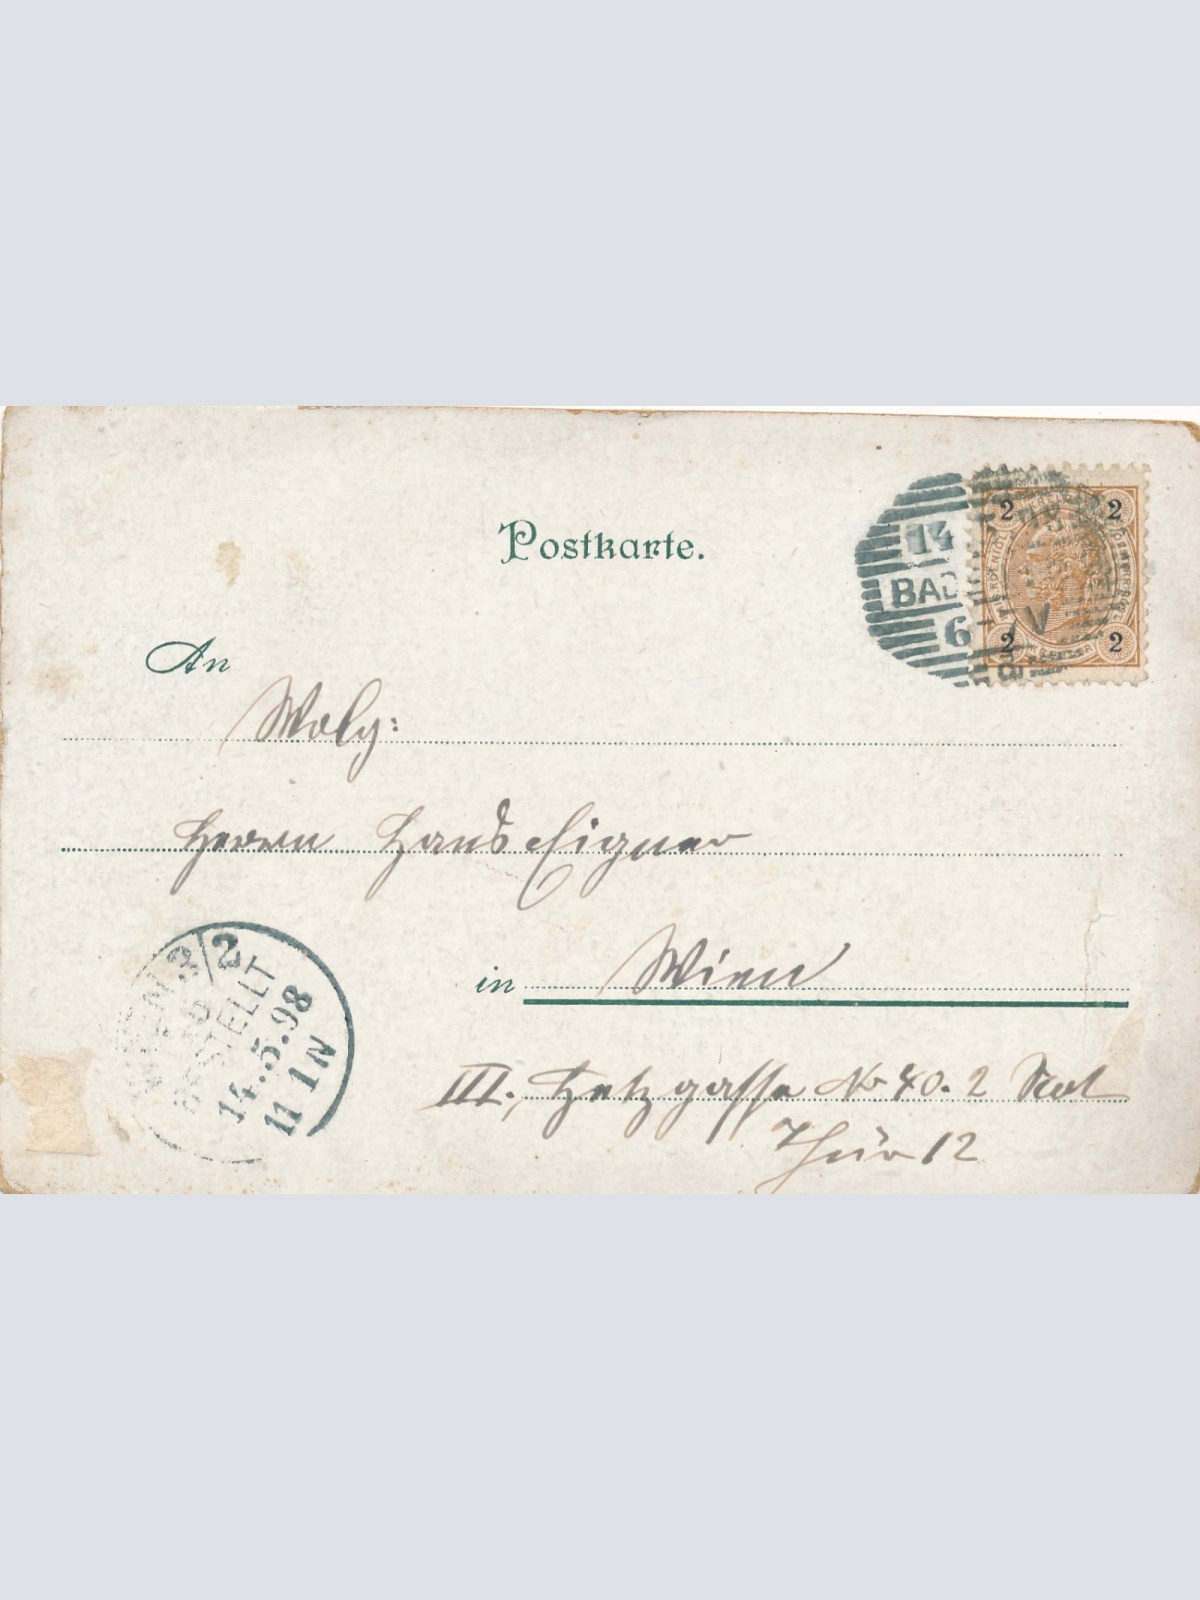 Postkarte.
14
BAD
6
V
8
2 2
2 2
An
Wolg:
Herrn Hans Eigner
in Wien
III., Hetzgasse No 40. 2 Stock
Thür 12
WIEN 3/2
BESTELLT
14.5.98
11 1 N